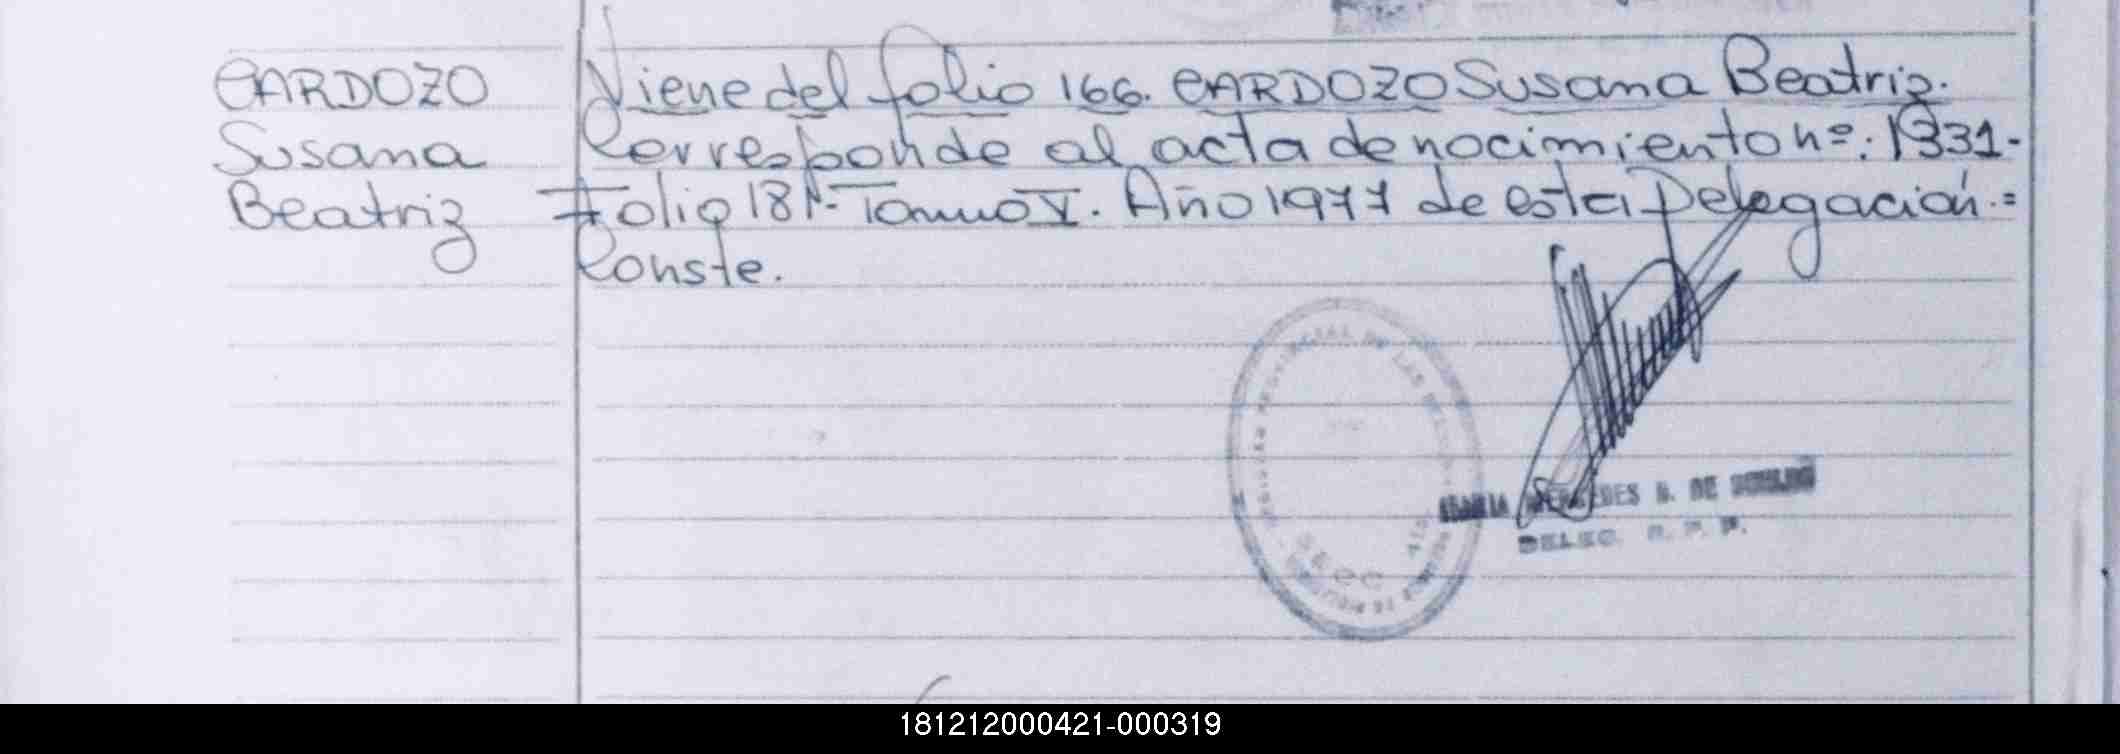 CARDOZO
Susana
Beatriz
Viene del folio 166. CARDOZO Susana Beatriz.
Corresponde al acta de nacimiento nº: 1331-
Folio 181- Tomo V. Año 1977 de esta Delegación.=
Conste.
PROVINCIAL DE LAS
DE
DELEG. R. P. P.
181212000421-000319